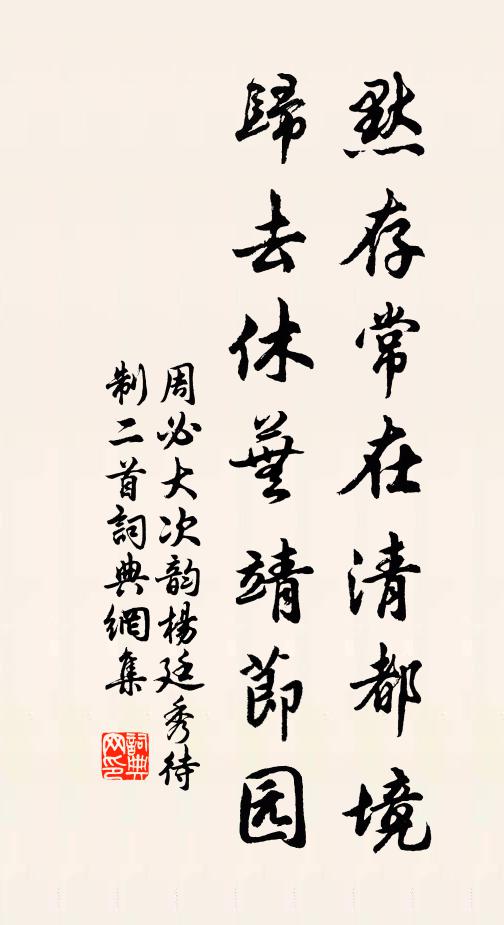 默存常在清都境
歸去休蕪靖節园
周必大次韵楊廷秀待
制二首詞典網集
詞典
网印